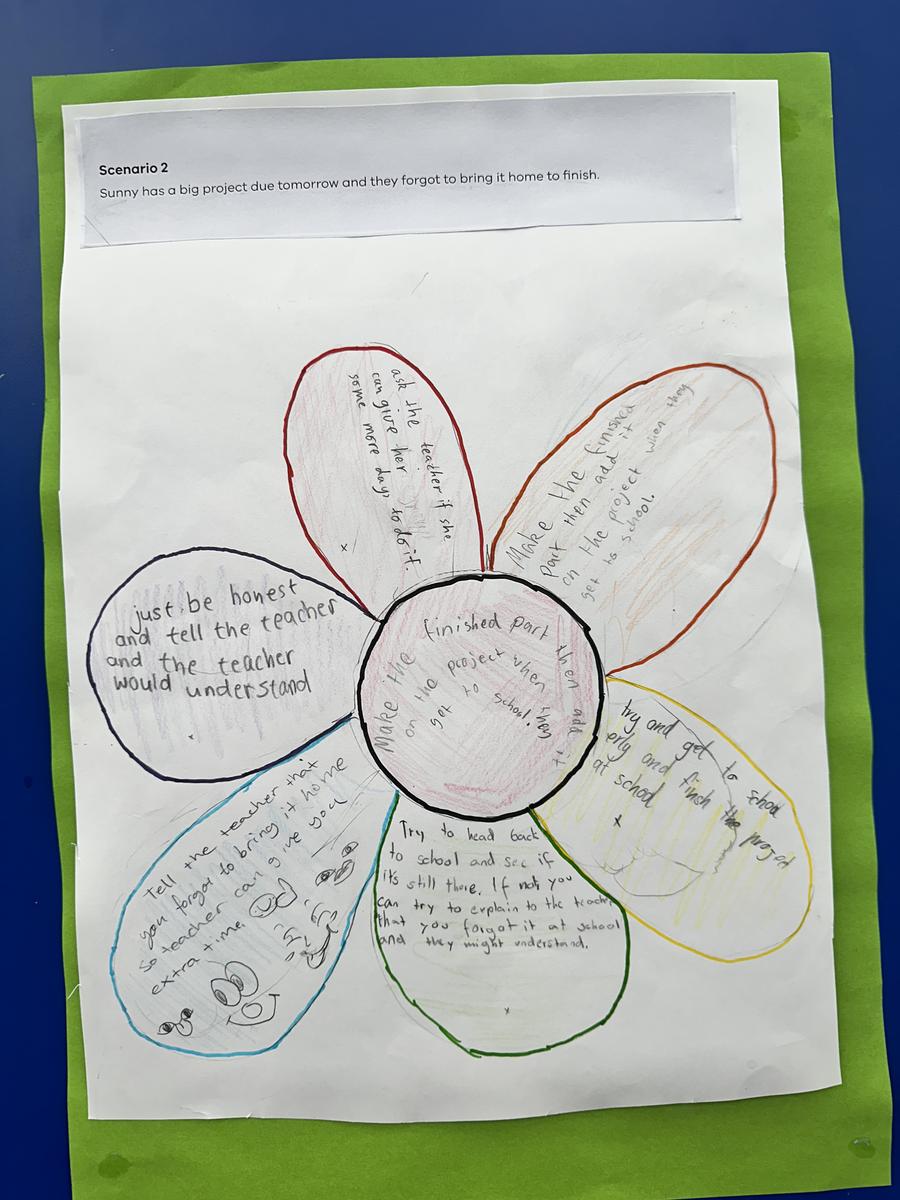 Scenario 2
Sunny has a big project due tomorrow and they forgot to bring it home to finish.
ask the teacher if she
can give her
some more days to do it.
Make the finished
part then add it
on the project when they
get to school.
just be honest
and tell the teacher
and the teacher
would understand
Make the finished part then add it
on the project when they
get to school.
try and get to schoo
erly and finch the projed
at school
Tell the teacher that
you forgot to bring it home
so teacher can give you
extra time.
Try to head back
to school and see if
it's still there. If not you
can try to explain to the teacher
that you forgot it at school
and they might understand.